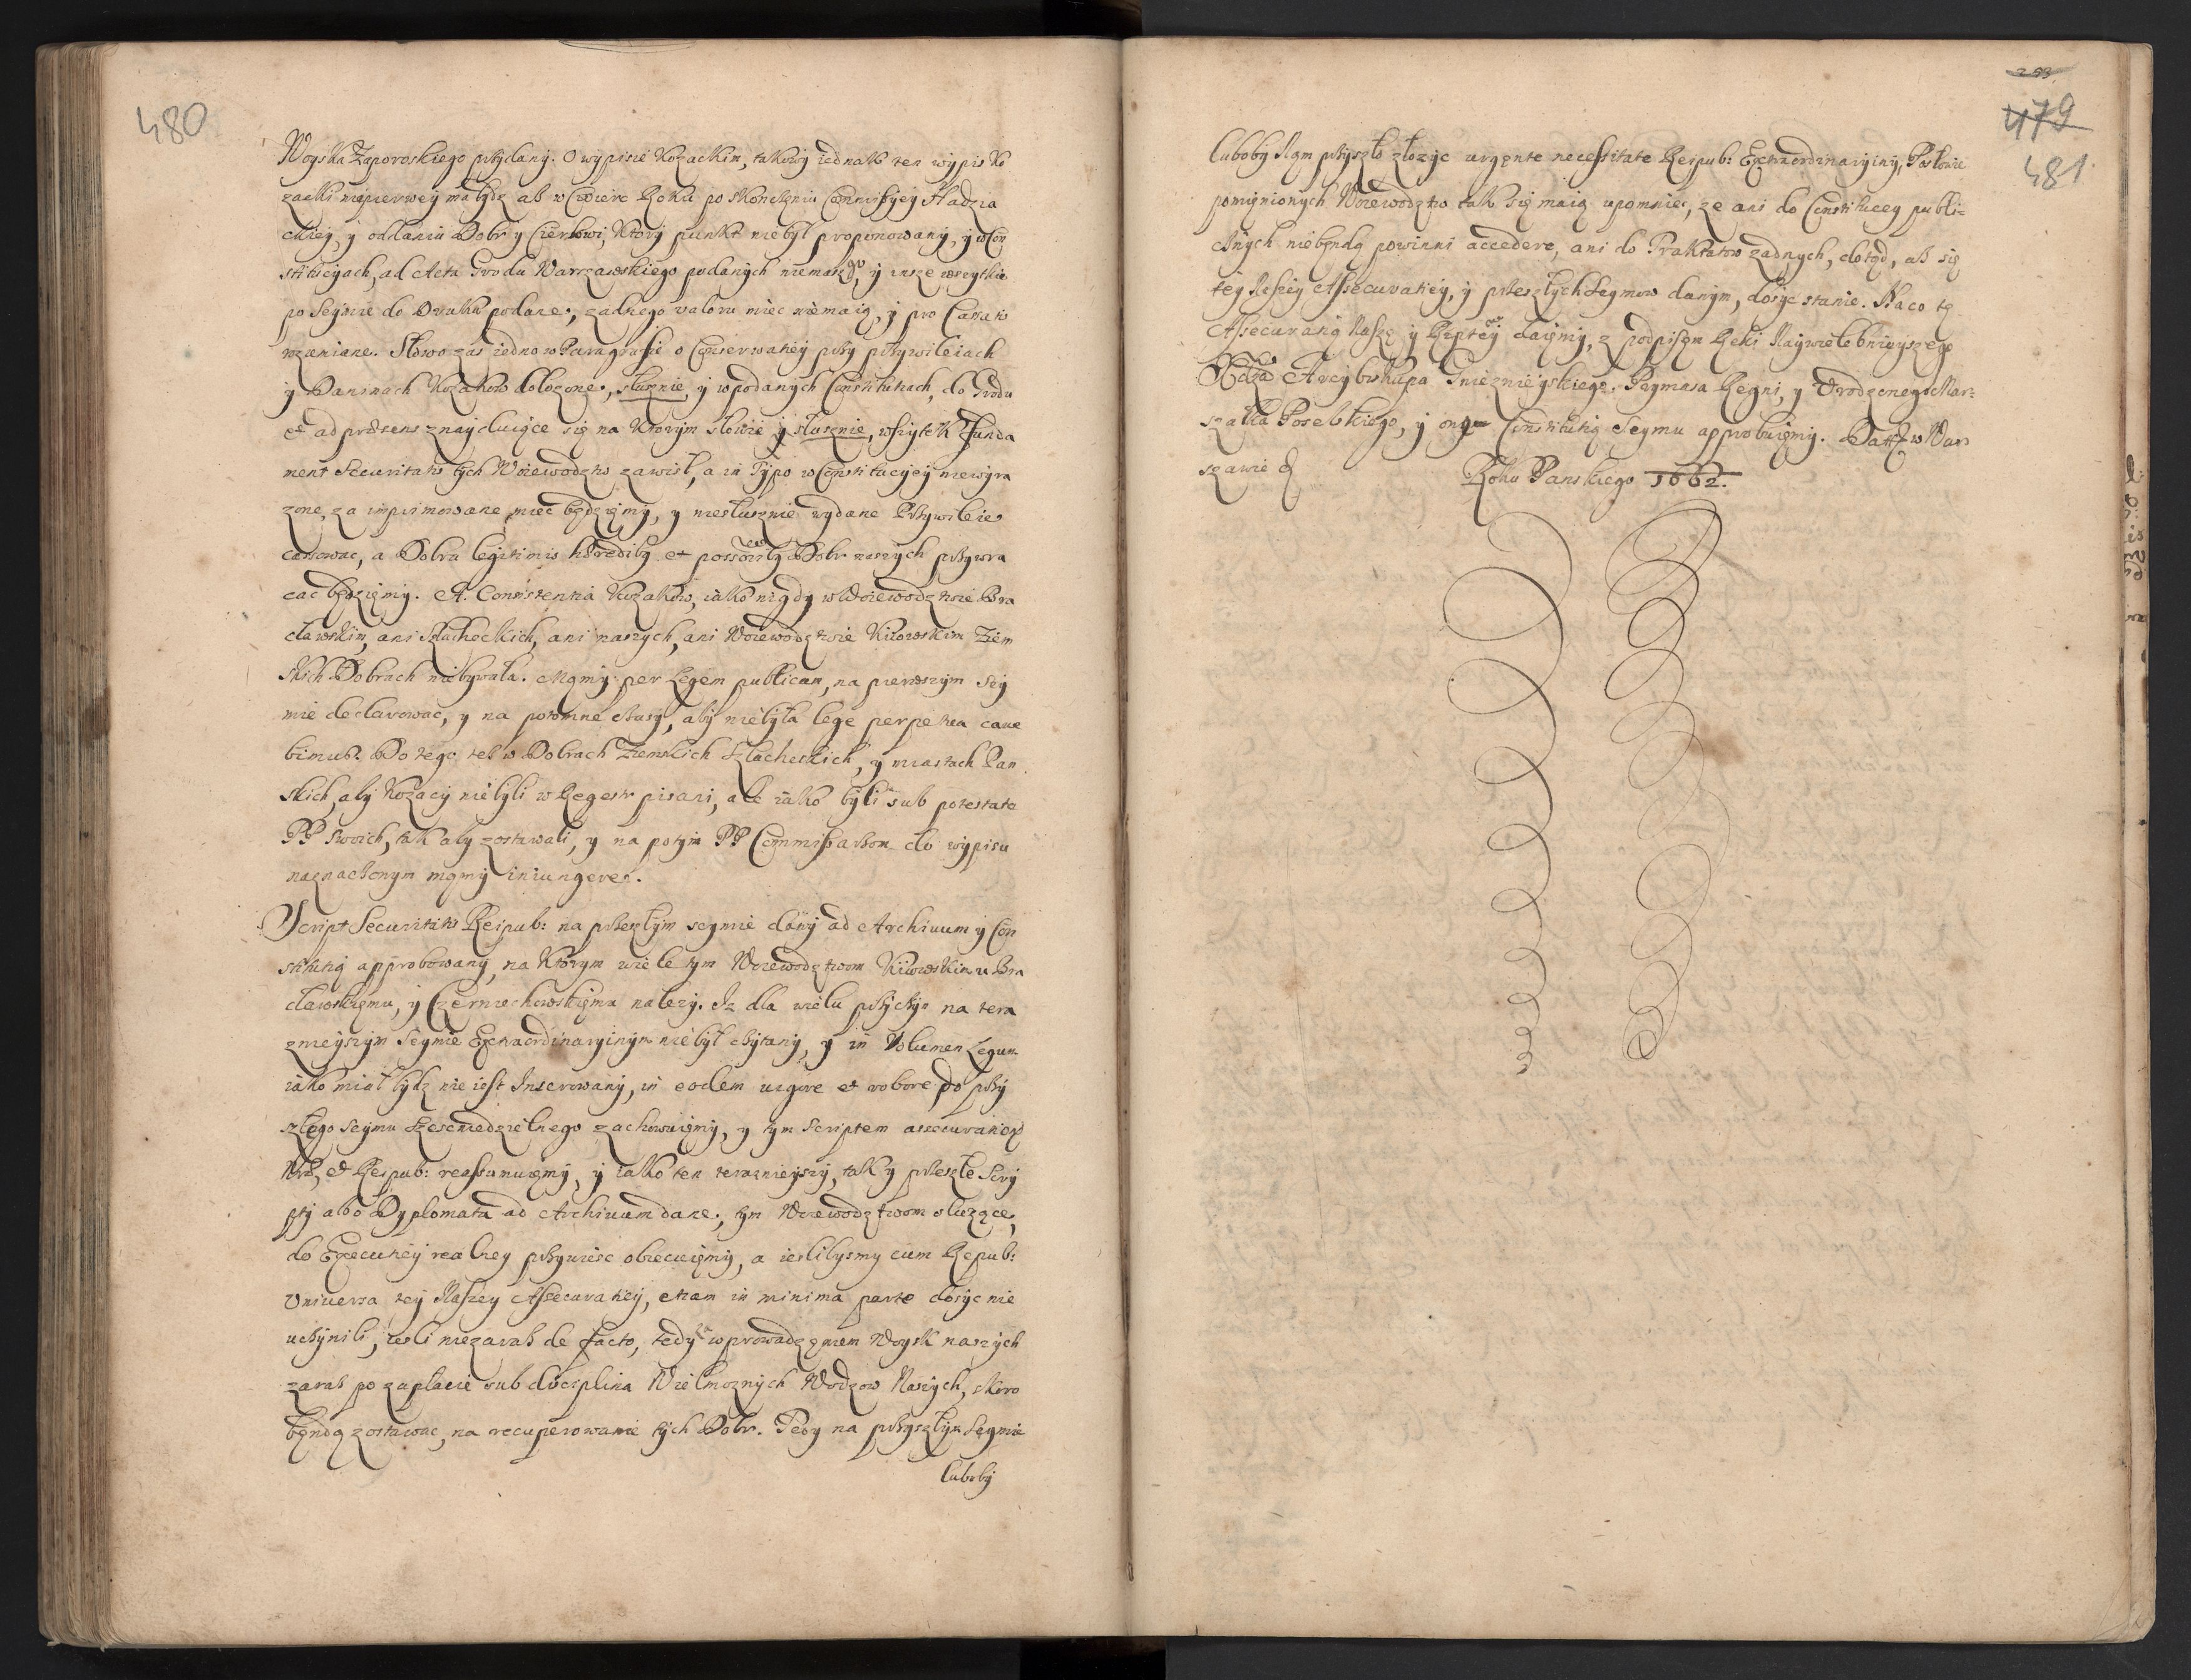 480
Woyska Zaporoskiego przydany. O wypisie Kozackim, takowy iednak ten wypis Ko
zacki naypierwey ma bydz aż w Cwierć Roku po skonczeniu Commissyey Hadzia
ckiey, y oddaniu Dobr y Cierkwi, ktory punkt niebył proponowany, y w Con
stitucyach, ad Acta Grodu Warszawskiego podanych niemasz go, y insze wszytkie
po Seymie do Druku podane, zadnego valoru miec niemaią, y pro Cassatis
wzmiane. Słowo zas iedno w Paragrafie o Conservatiey przy przywileiach
y Daninach Kozakow dołozone, słusznie, y w podanych Constitutiach, do Grodu
et ad præsens znayduiące się na ktorym słowie y słusznie, wszytek Funda
ment Securitatis tych Woiewodztw zawisł, a in Typo w Constitucyey niewyra
zone, za imprimowane miec będziemy, y niesłusznie wydane Przywileie
cassowac, a Dobra legitimis hæredibus et possessoribus Dobr naszych przywra
cac będziemy. A Consistentia Kozakow, iako nigdy w Woiewodztwie Bra
cławskim, ani Szlacheckich, ani naszych, ani Woiewodztwie Kiiowskim Ziem
skich Dobrach niebywała. Mamy per Legem publicam, na pierwszym Sey
mie declarowac, y na potomne czasy, aby niebyła lege perpetua cave
bimus. Do tego tez w Dobrach Ziemskich Szlacheckich, y miastach Pan
skich, aby Kozacy niebyli w Regestr pisani, ale iako byli sub potestate
PP swoich, tak aby zostawali, y na potym PP Commissarzom do wypisu
naznaczonym mamy iniungere.
Script Securitatis Reipub: na przeszłym seymie dany ad Archivum y Con
stitutią approbowany, na ktorym wiele tym Woiewodztwom Kiiowskiemu Bra
cławskiemu, y Czerniechowskiemu nalezy. Iz dla wielu przyczyn na tera
znieyszym Seymie Extraordinaryinym niebył czytany, y in Volumen Legum
iako miał bydz nie iest Inserowany, in eodem vigore et robore do przy
szłego Seymu szescniedzielnego zachowuiemy, y tym Scriptem assecurationem
Nram et Reipub: reassumuiemy, y iako ten teraznieyszy, tak y przeszłe Scry
pty albo Dyplomata ad Archivum dane, tym Woiewodztwom słuzące,
do Executiey realney przywiesc obiecuiemy, a iesliżysmy cum Repub:
Universa tey Naszey Assecuratiey, etiam in minima parte dosyc nie
uczynili, iesli niezaraz de facto, tedy wprowadzeniem Woysk naszych
zaraz po zapłacie sub disciplina Wielmoznych Wodzow Naszych, skoro
będą zostawac, na recuperowanie tych Dobr. Tedy na przyszłym Seymie
luboby
479
481
luboby Nam przyszło złozyc urgente necessitate Reipub: Extraordinaryiny, Posłowie
pomienionych Woiewodztw tak się maią upomniec, ze ani do Constitucey publi-
cznych niebendą powinni accedere, ani do Traktatow zadnych, dotąd, aż się
tey Naszey Assecuratiey, y przeszłych Seymow danym, dosyc stanie. Na co tę
Assecuratią Naszę y Rzptey daiemy, z podpisem Ręki Naywielebnieyszego
Xdza Arcybiskupa Gnieznieyskiego. Prymasa Regni, y Urodzonego Mar-
szałka Poselskiego, y onę Constitutią Seymu approbuiemy. Datt w War
szawie d
Roku Panskiego 1662.